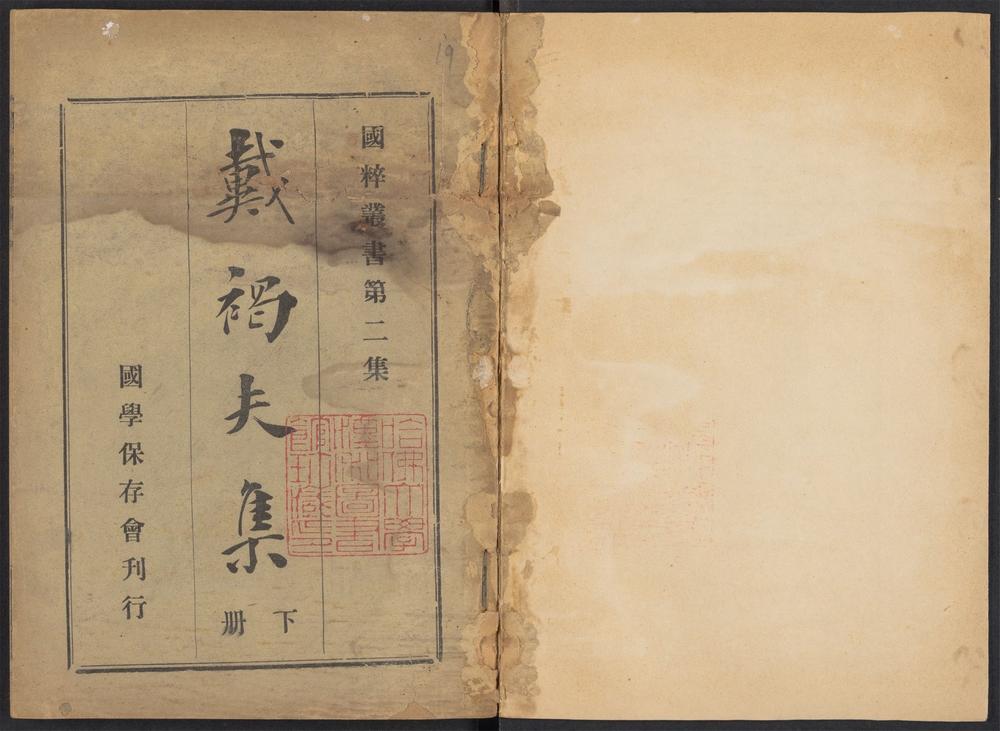 國粹叢書第二集
戴褐夫集
下册
國學保存會刊行
哈佛大學
漢和圖書
館珍藏印
19